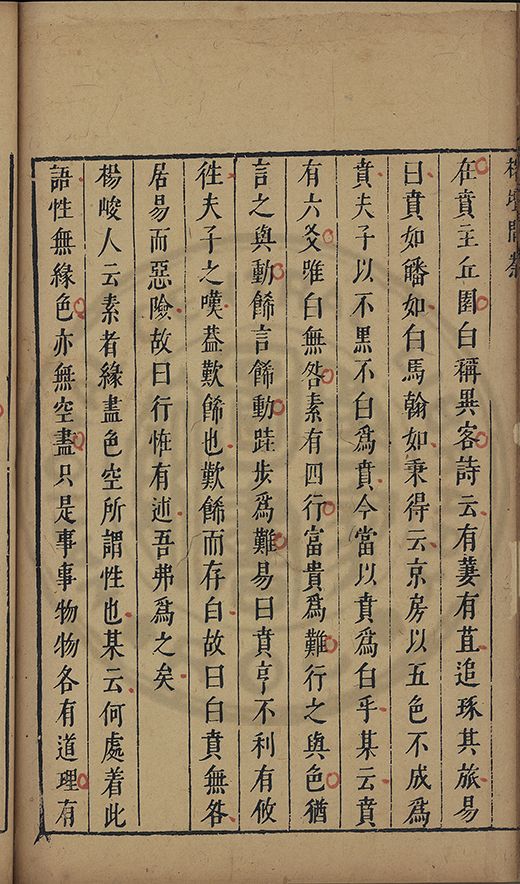 榕壇問業
在賁主丘園白稱異客詩云有萋有苴追琢其旅易
曰賁如皤如白馬翰如秉得云京房以五色不成爲
賁夫子以不黑不白爲賁今當以賁爲白乎某云賁
有六爻唯白無咎素有四行富貴爲難行之與色猶
言之與動餙言餙動跬步爲難易曰賁亨不利有攸
徃夫子之嘆葢歎餙也歎餙而存白故曰白賁無咎
居易而惡險故曰行恠有述吾弗爲之矣
楊峻人云素者緣盡色空所謂性也某云何處着此
語性無緣色亦無空盡只是事事物物各有道理有